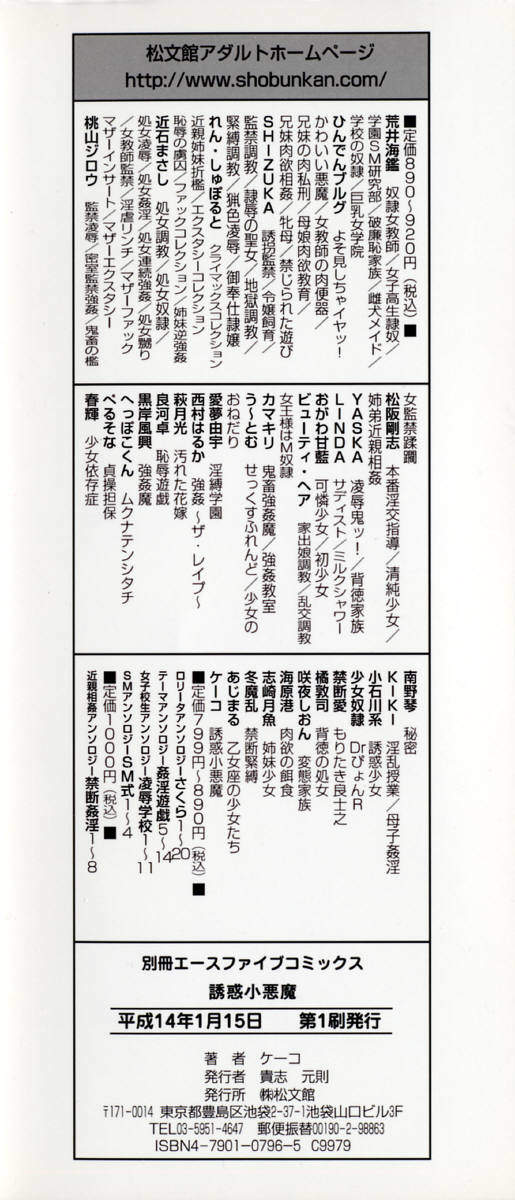 松文館アダルトホームページ
http://www.shobunkan.com/
■定価890～920円（税込）■
荒井海鑑　奴隷女教師／女子高生隷奴／
学園SM研究部／破廉恥家族／雌犬メイド／
学校の奴隷／巨乳女学院
ひんでんブルグ　よそ見しちゃイヤッ！
かわいい悪魔／女教師の肉便器／
兄妹の肉私刑／母娘肉欲教育／
兄妹肉欲相姦／牝母／禁じられた遊び
SHIZUKA　誘拐監禁／令嬢飼育／
監禁調教／隷辱の聖女／地獄調教／
緊縛調教／猟色凌辱／御奉仕隷嬢
れん・しゅぽると　クライマックスコレクション
近親姉妹折檻／エクスタシーコレクション
恥辱の虜囚／ファックコレクション／姉妹逆強姦
近石まさし　処女調教／処女奴隷／
処女凌辱／処女姦淫／処女連続強姦／処女嬲り
／女教師監禁／淫虐リンチ／マザーファック
マザーインサート／マザーエクスタシー
桃山ジロウ　監禁凌辱／密室監禁強姦／鬼畜の檻
女監禁蹂躙
松阪剛志　本番淫交指導／清純少女／
姉弟近親相姦
YASKA　凌辱鬼ッ！／背徳家族
LINDA　サディスト／ミルクシャワー
おがわ甘藍　可憐少女／初少女
ビューティ・ヘア　家出娘調教／乱交調教
女王様はM奴隷
カマキリ　鬼畜強姦魔／強姦教室
う～とむ　せっくすふれんど／少女の
おねだり
愛夢由宇　淫縛学園
西村はるか　強姦　～ザ・レイプ～
萩月光　汚れた花嫁
良河卓　恥辱遊戯
黒岸風興　強姦魔
へっぽこくん　ムクナテンシタチ
ぺるそな　貞操担保
春輝　少女依存症
南野琴　秘密
KIKI　淫乱授業／母子姦淫
小石川系　誘惑少女
少女奴隷　DrぴょんR
禁断愛　もりたき良士之
橘敦司　背徳の処女
咲夜しおん　変態家族
海原港　肉欲の餌食
志崎月魚　姉妹少女
冬魔乱　禁断緊縛
あじまる　乙女座の少女たち
ケーコ　誘惑小悪魔
■定価799円～890円（税込）■
ロリータアンソロジーさくら1～20
テーマアンソロジー姦淫遊戯5～14
女子校生アンソロジー凌辱学校1～11
SMアンソロジーSM式1～4
■定価1000円（税込）■
近親相姦アンソロジー禁断姦淫1～8
別冊エースファイブコミックス
誘惑小悪魔
平成14年1月15日　第1刷発行
著　者　ケーコ
発行者　貴志　元則
発行所　㈱松文館
〒171-0014　東京都豊島区池袋2-37-1池袋山口ビル3F
TEL03-5951-4647　郵便振替00190-2-98863
ISBN4-7901-0796-5 C9979